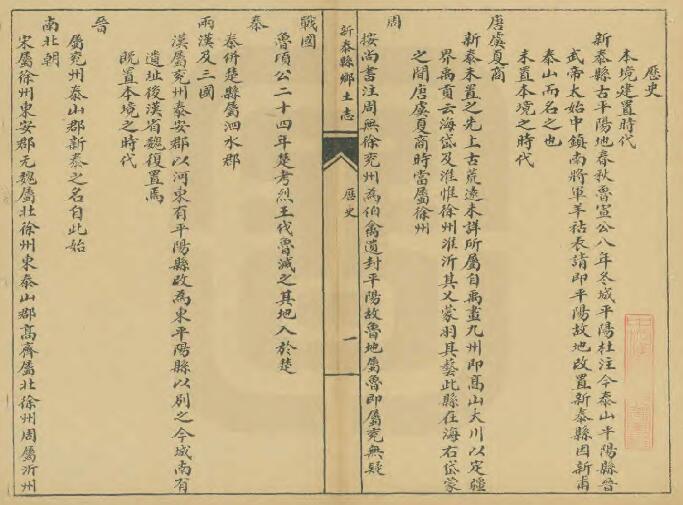 歷史
本境建置時代
新泰縣古平陽地春秋魯宣公八年冬城平陽杜注今泰山平陽縣晉
武帝太始中鎮南將軍羊祜表請即平陽故地改置新泰縣因新甫
泰山而名之也
未置本境之時代
唐虞夏商
新泰未置之先上古荒遠未詳所屬自禹畫九州即高山大川以定疆
界禹貢云海岱及淮惟徐州淮沂其乂蒙羽其藝此縣在海右岱蒙
之間唐虞夏商時當屬徐州
周
按尚書注周無徐兗州為伯禽遺封平陽故魯地屬魯即屬兗無疑
新泰縣鄉土志
歷史
一
戰國
魯頃公二十四年楚考烈王伐魯滅之其地入於楚
秦
秦併楚縣屬泗水郡
兩漢及三國
漢屬兗州泰安郡以河東有平陽縣改為東平陽縣以別之今城南有
遺址後漢省魏復置焉
既置本境之時代
晉
屬兗州泰山郡新泰之名自此始
南北朝
宋屬徐州東安郡元魏屬北徐州東泰山郡高齊屬北徐州周屬沂州